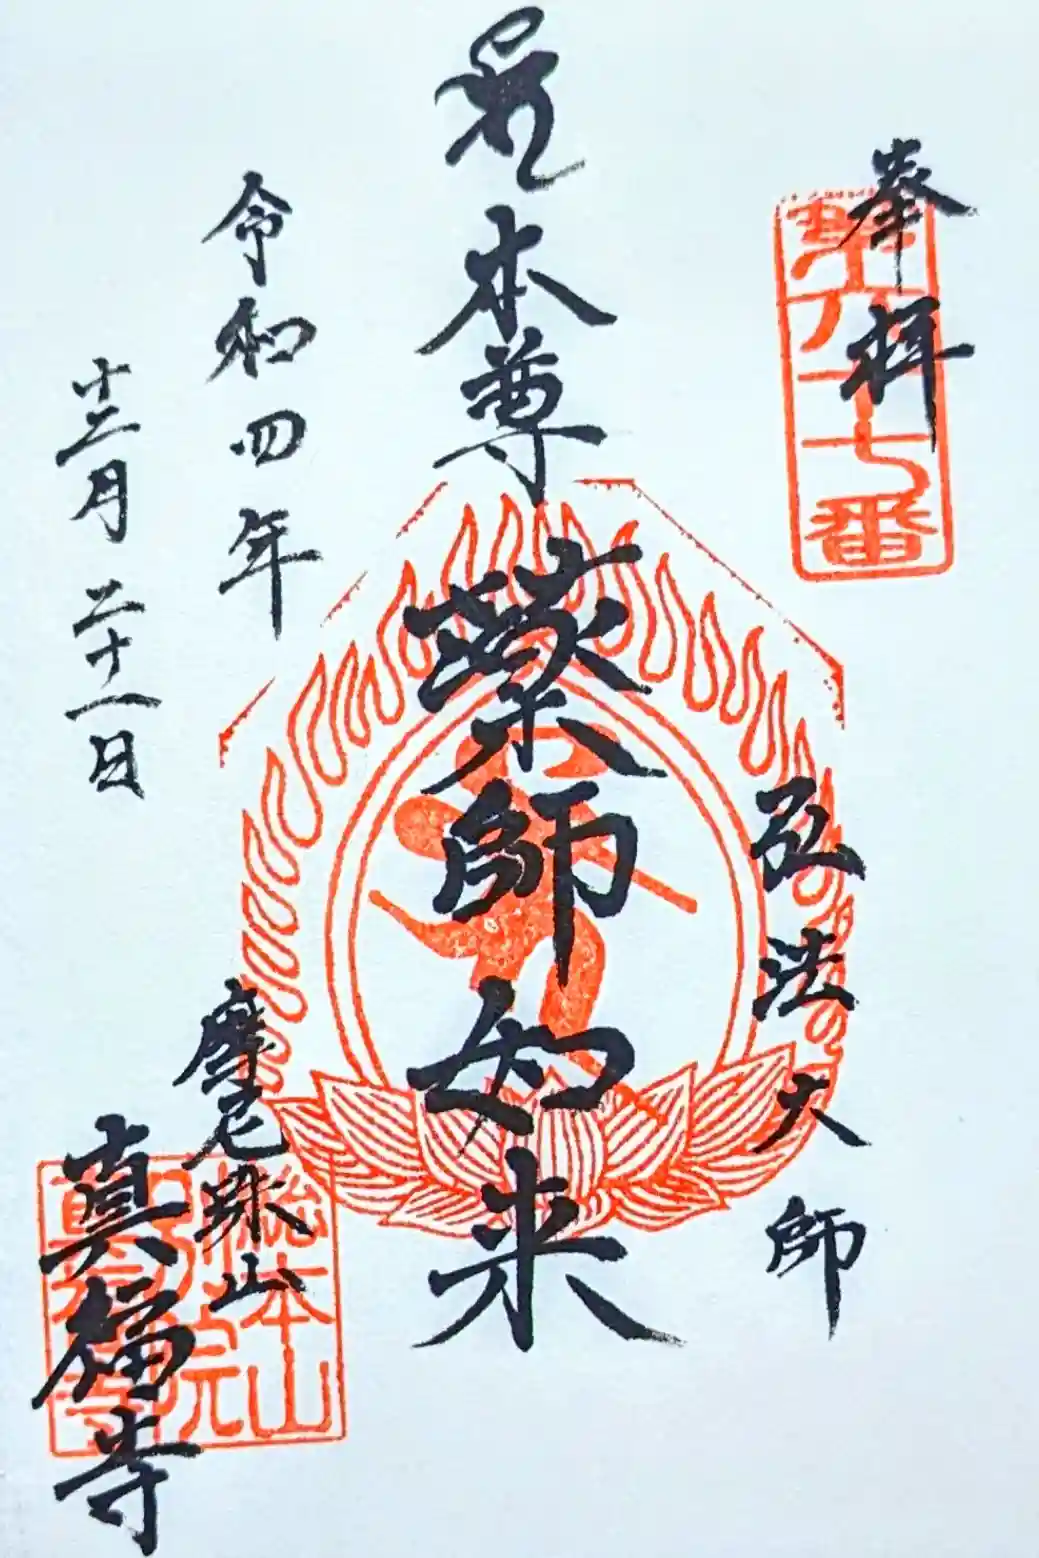 奉拝
第六十七番
弘法大師
本尊
薬師如来
令和四年
十二月二十一日
摩尼珠山
真福寺
総本山